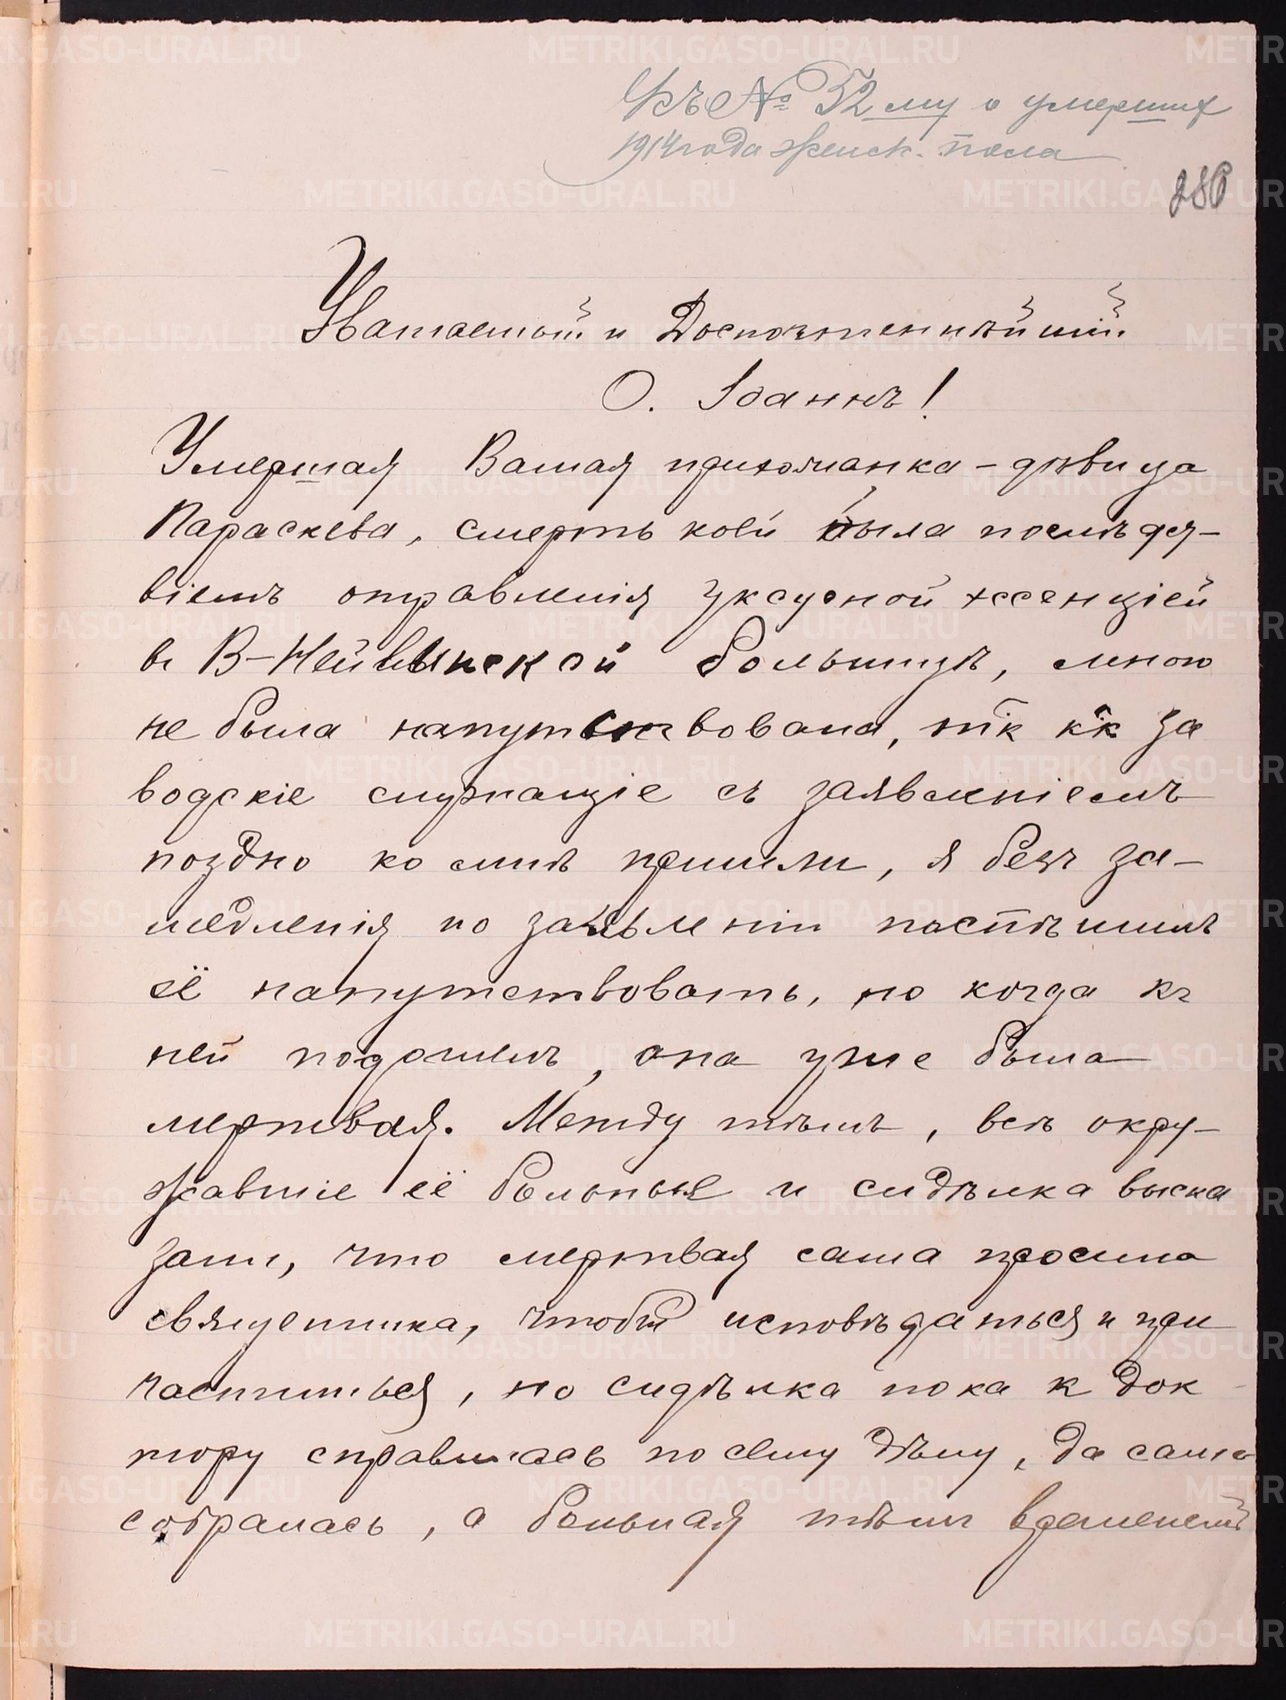 Къ № 52 му о умерших
1914 года женск. пола
280
Уважаемый и Досточтеннѣйшій
О. Іоаннъ!
Умершая Вашая прихожанка - дѣвица
Параскева, смерть коей была послѣдст-
віемъ отравленія уксусной эссенціей
въ В-Нейвинской больницѣ, мною
не была напутствована, т̄к к̄к за
водскіе служащіе съ заявленіемъ
поздно ко мнѣ пришли, я безъ за-
медленія по заявленію поспѣшилъ
её напутствовать, но когда къ
ней подошелъ, она уже была
мертвая. Между тѣмъ, всѣ окру-
жавшіе её больные и сидѣлка выска
зали, что мертвая сама просила
священника, чтобы исповѣдаться и при
частиться, но сидѣлка пока к док
тору справилась по сему дѣлу, да сама
собралась, а больная тѣмъ временемъ
METRIKI.GASO-URAL.RU